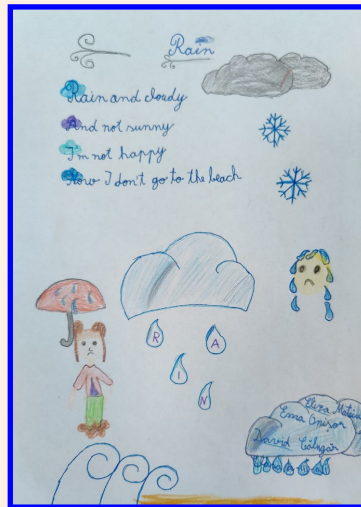 Rain
Rain and cloudy
And not sunny
I'm not happy
Now I don't go to the beach
R
A
I
N
Eliza
Ema
David